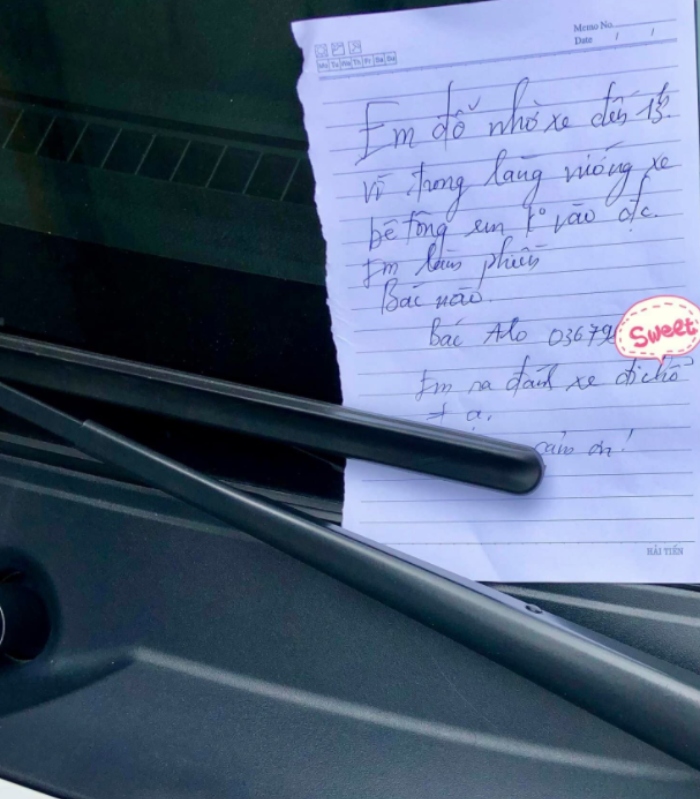 Memo No.
Date / /
Mo Tu We Th Fr Sa Su
Em đỗ nhờ xe đến 15h.
Vì trong làng vướng xe
bê tông em k° vào đc.
Em làm phiền
Bác nào.
Bác Alo 03679
Sweet
Em ra đánh xe đi chỗ
≠ ạ.
cảm ơn!
HẢI TIẾN